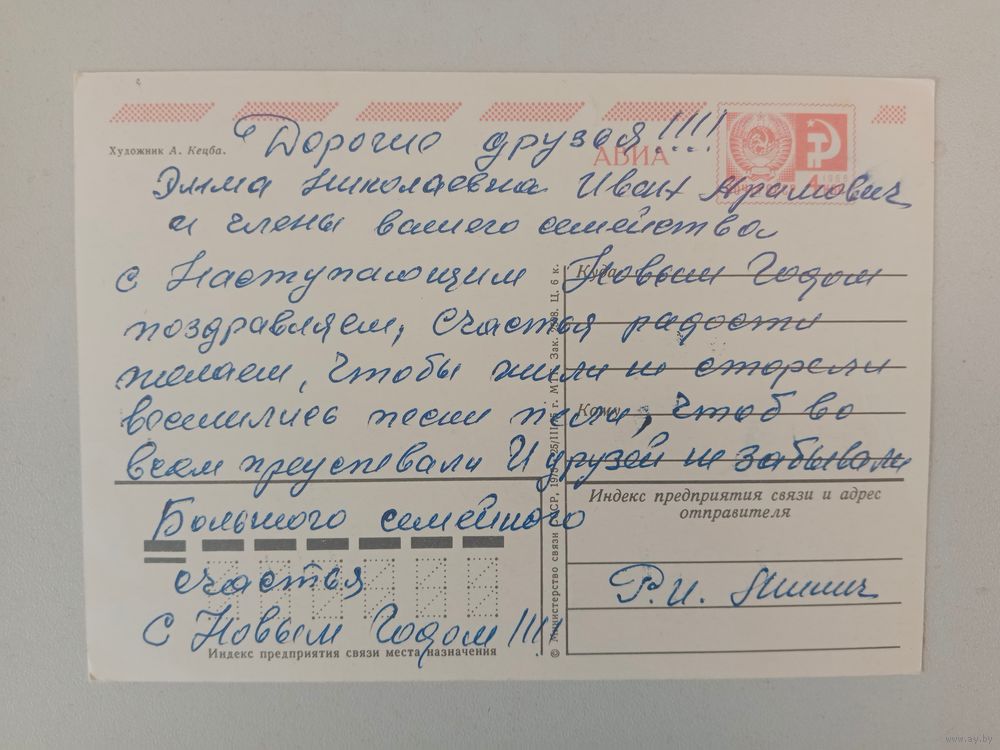 Художник А. Кецба.
Дорогие друзья!!!!
АВИА
Эмма Николаевна Иван Арамович
и члены вашего семейства
с Наступающим Новым Годом
Куда
поздравляем, Счастья радости
желаем, Чтобы жили не старели
веселились песни пели, Чтоб во
Кому
всем преуспевали И друзей не забывали
Индекс предприятия связи и адрес
отправителя
Большого семейного
счастья
С Новым Годом!!!!
Р.И.
Индекс предприятия связи места назначения
© Министерство связи СССР, 1975 г. Ц. 6 к.
www.ay.by